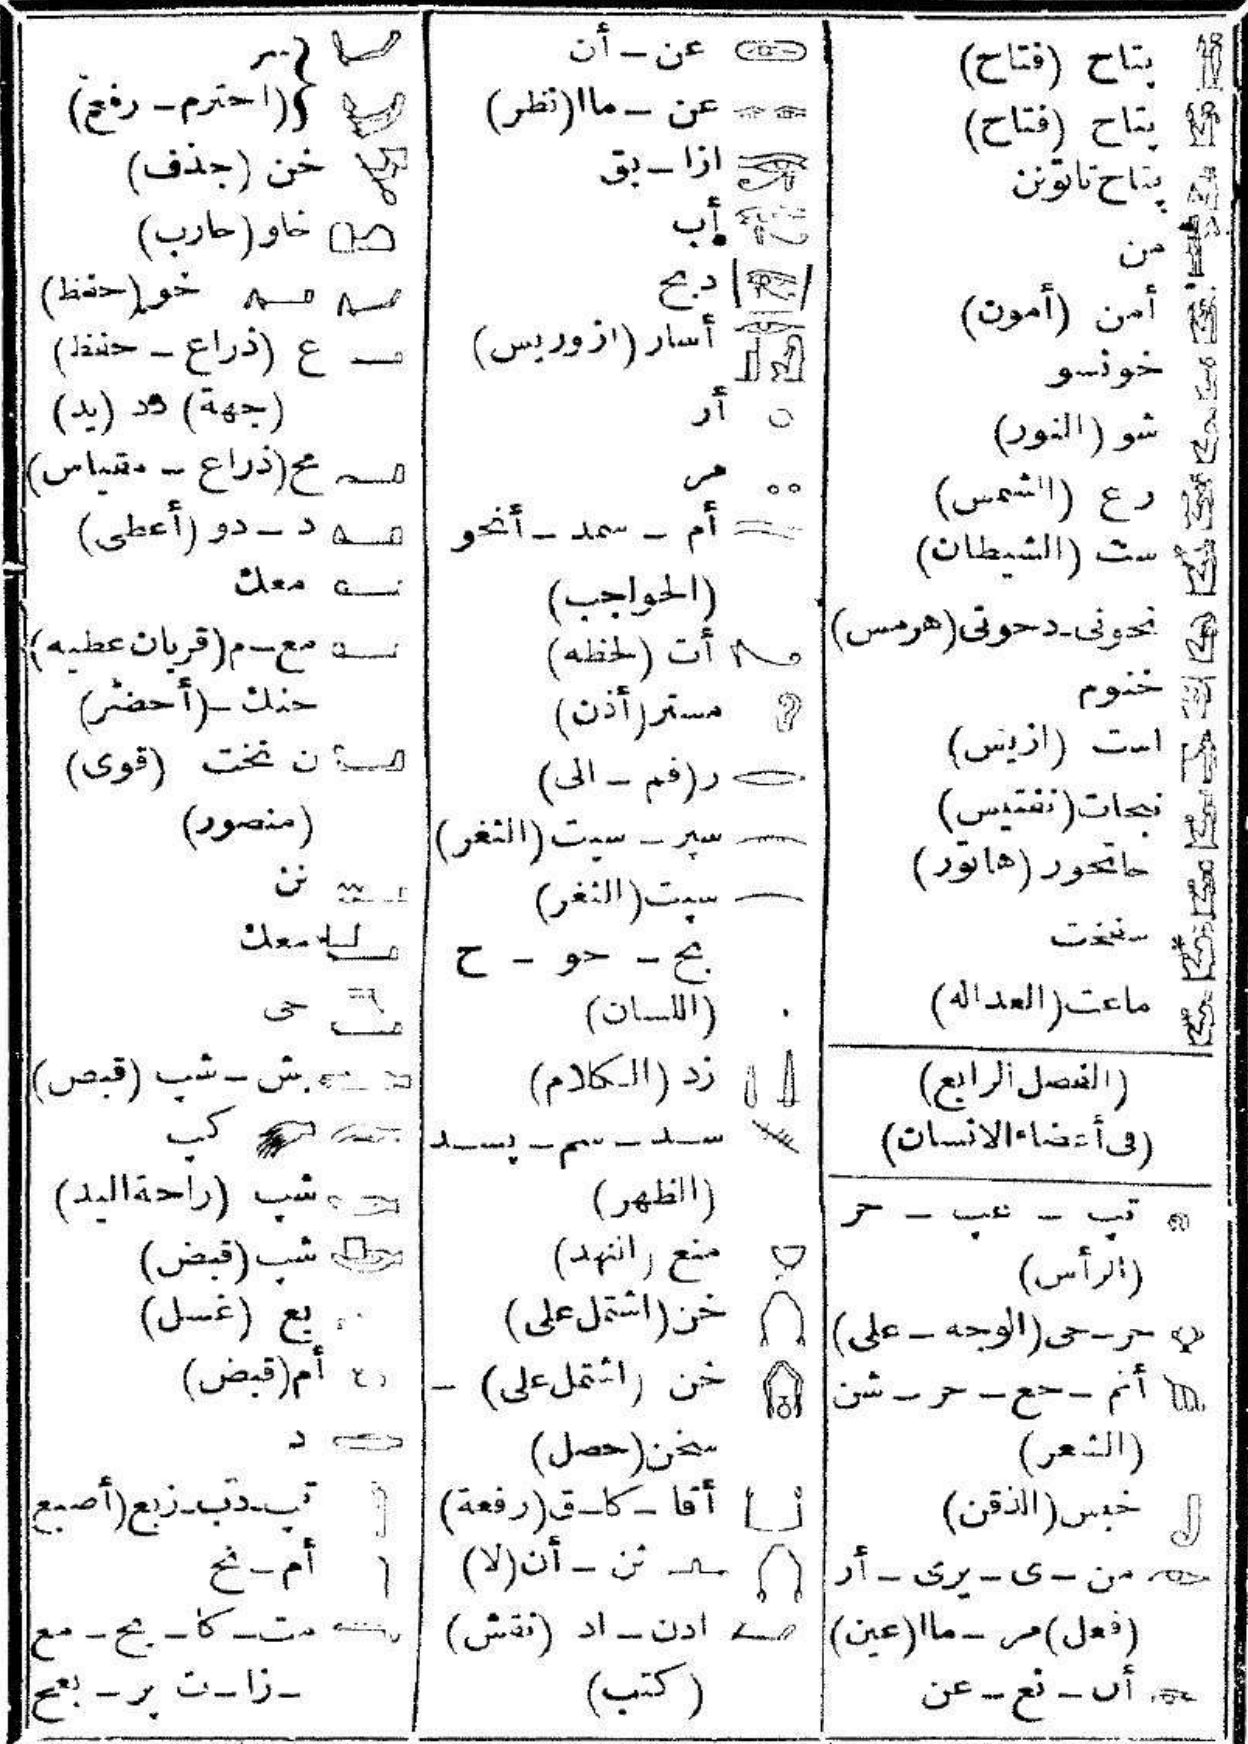 پتاح (فتاح)
پتاح (فتاح)
پتاح تاتونن
من
أمن (أمون)
خونسو
شو (النور)
رع (الشمس)
ست (الشيطان)
تحوتى ـ دحوتى (هرمس)
خنوم
است (ازيس)
نبحات (نفتيس)
حاتحور (هاتور)
سخت
ماعت (العداله)
(الفصل الرابع)
(فى أعضاء الانسان)
تپ ــ ــ حر
(الرأس)
حر ـ حى (الوجه ــ على)
أنم ــ حع ــ حر ــ شن
(الشعر)
خبس (الذقن)
من ــ ى ــ يرى ــ أر
(فعل) مر ــ ماا (عين)
أن ــ نع ــ عن
عن ــ أن
عن ــ ماا (نظر)
ازا ــ بق
أب
دبح
أسار (ازوريس)
أر
مر
أم ــ سمد ــ أنحو
(الحواجب)
أت (لحظه)
مستر (أذن)
ر (فم ــ الى)
سپر ــ سپت (الثغر)
سپت (الثغر)
بح ــ حو ــ ح
(اللسان)
زد (الكلام)
سـد ــ سم ــ پسـد
(الظهر)
منع (النهد)
خن (اشتمل على)
خن (اشتمل على) ــ
سخن (حصل)
أقا ــ كا ــ ق (رفعة)
نن ــ أن (لا)
ادن ــ اد (نقش)
(كتب)
(احترم ــ رفع)
خن (جذف)
خاو (حارب)
خو (حفظ)
ع (ذراع ــ حفظ)
(جهة) دد (يد)
مح (ذراع ــ مقياس)
د ــ دو (أعطى)
معك
مع ــ م (قربان عطيه)
حنك ــ (أحضر)
ن نخت (قوى)
(منصور)
نن
معك
حى
ش ــ شپ (قبض)
كپ
شپ (راحة اليد)
شپ (قبض)
يع (غسل)
أم (قبض)
د
تپ ـ دتب ـ زبع (أصبع
أم ــ نح
مت ــ كا ــ بح ــ مع
ــ زا ــ ت پر ــ بعح